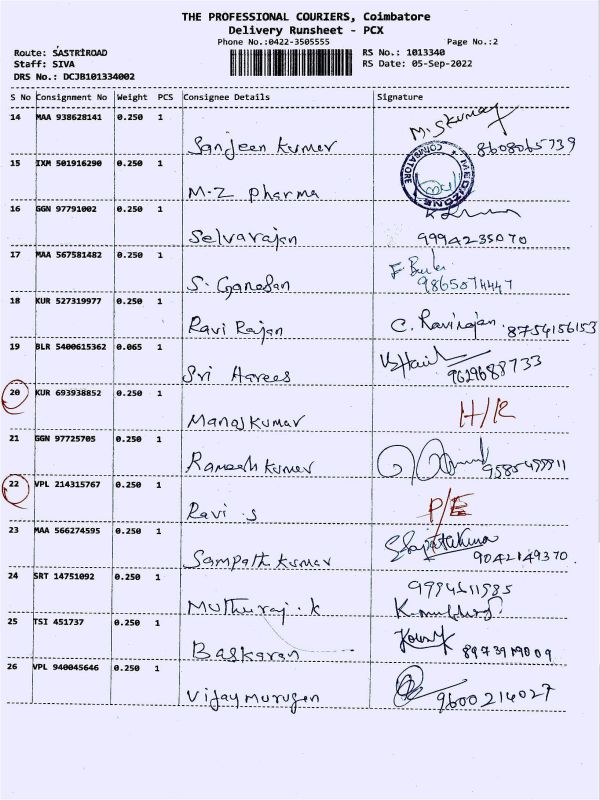 THE PROFESSIONAL COURIERS, Coimbatore
Delivery Runsheet - PCX
Phone No.:0422-3505555 Page No.:2
Route: SASTRIROAD RS No.: 1013340
Staff: SIVA RS Date: 05-Sep-2022
DRS No.: DCJB101334002
S No Consignment No Weight PCS Consignee Details Signature
14 MAA 938628141 0.250 1
Sanjeen kumar M.Skumar 8608065739
15 IXM 501916290 0.250 1
M-Z Pharma MEDIZONE COIMBATORE
16 GGN 97791002 0.250 1
Selvarajan 9994235070
17 MAA 567581482 0.250 1
S. Ganesan 9865074447
18 KUR 527319977 0.250 1
Ravi Rajan C. Ravirajan. 8754156153
19 BLR 5400615362 0.065 1
Sri Harees 9629688733
20 KUR 693938852 0.250 1
Manojkumar H/R
21 GGN 97725705 0.250 1
Ramesh kumar
22 VPL 214315767 0.250 1
Ravi .s P/E
23 MAA 566274595 0.250 1
Sampath kumar 9042149370.
24 SRT 14751092 0.250 1
Muthuraj . k 9994611985
25 TSI 451737 0.250 1
Baskaran
26 VPL 940045646 0.250 1
Vijay Murugan 9600214027